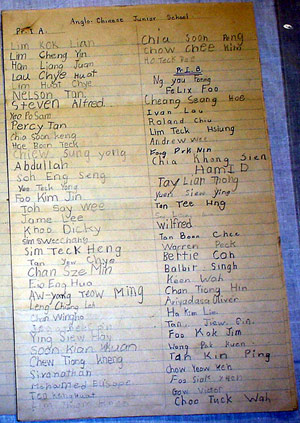 Anglo-Chinese Junior School
Pr. I. A.
Lim Kok Lian
Lim Cheng Yin
Han Liang Juan
Lau Chye Huat
Lim Huat Chye
Nelson Tan
Steven Alfred
Yeo Po Sam
Percy Tan
Chia Soon Keng
Hoe Boon Teck
Chiew Sung Yong
Abdullah
Soh Eng Seng
Yeo Teck Yong
Foo Kim Jin
Toh Say Wee
Jame Lee
Khoo Dicky
Sim Swee Chang
Sim Teck Heng
Tan Jew Chye
Chan Sze Min
Eio Eng Hua
Aw-yong Teow Ming
Leng
Chan Wingho
Ying Siew Hay
Soon Kian
Chew Tiong Kheng
Sivanathan
Mohamed Eusope
Chia Soon Peng
Chow Chee King
Ho Teck Teo
Pr. I. B.
Ng You Tiong
Felix Foo
Cheang Seang Hoe
Ivan Lau
Roland Chiu
Lim Teck Hsiung
Andrew Wee
Fong Pok Min
Chia Khong Sien
Hamid
Tay Lian Thong
Yuen Siew Ying
Tan Tee Hng
Wilfred
Tan Boon Chee
Warren Peck
Bertie Coh
Balbir Singh
Keen Wah
Chan Tiong Hin
Ariyadasa Oliver
Ho Kim Lim
Tan Jiew Sin
Foo Kok Jim
Wong Pak Yuen
Tan Kin Ping
Chow Yeow Wen
Foo
Gow Victor
Choo Tuck Wah